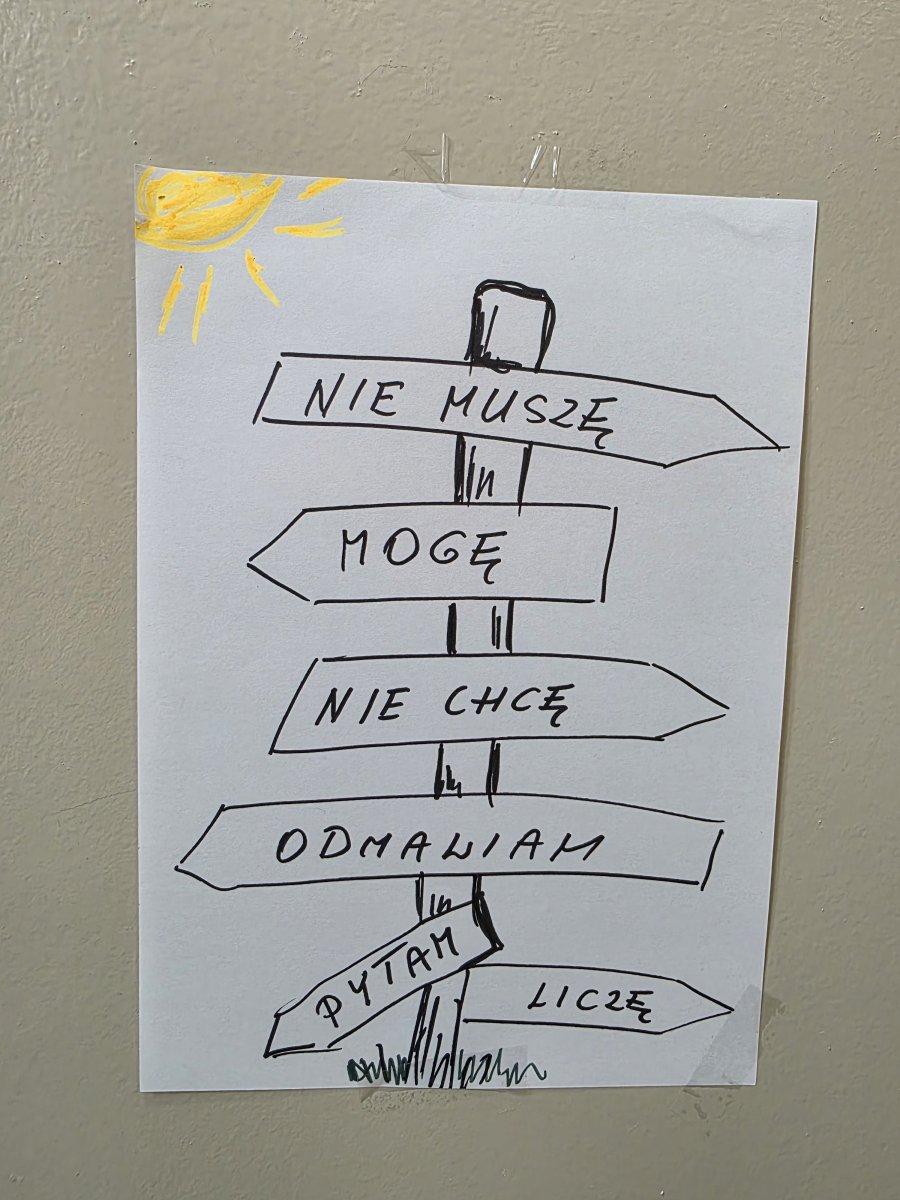 NIE MUSZĘ
MOGĘ
NIE CHCĘ
ODMAWIAM
PYTAM
LICZĘ